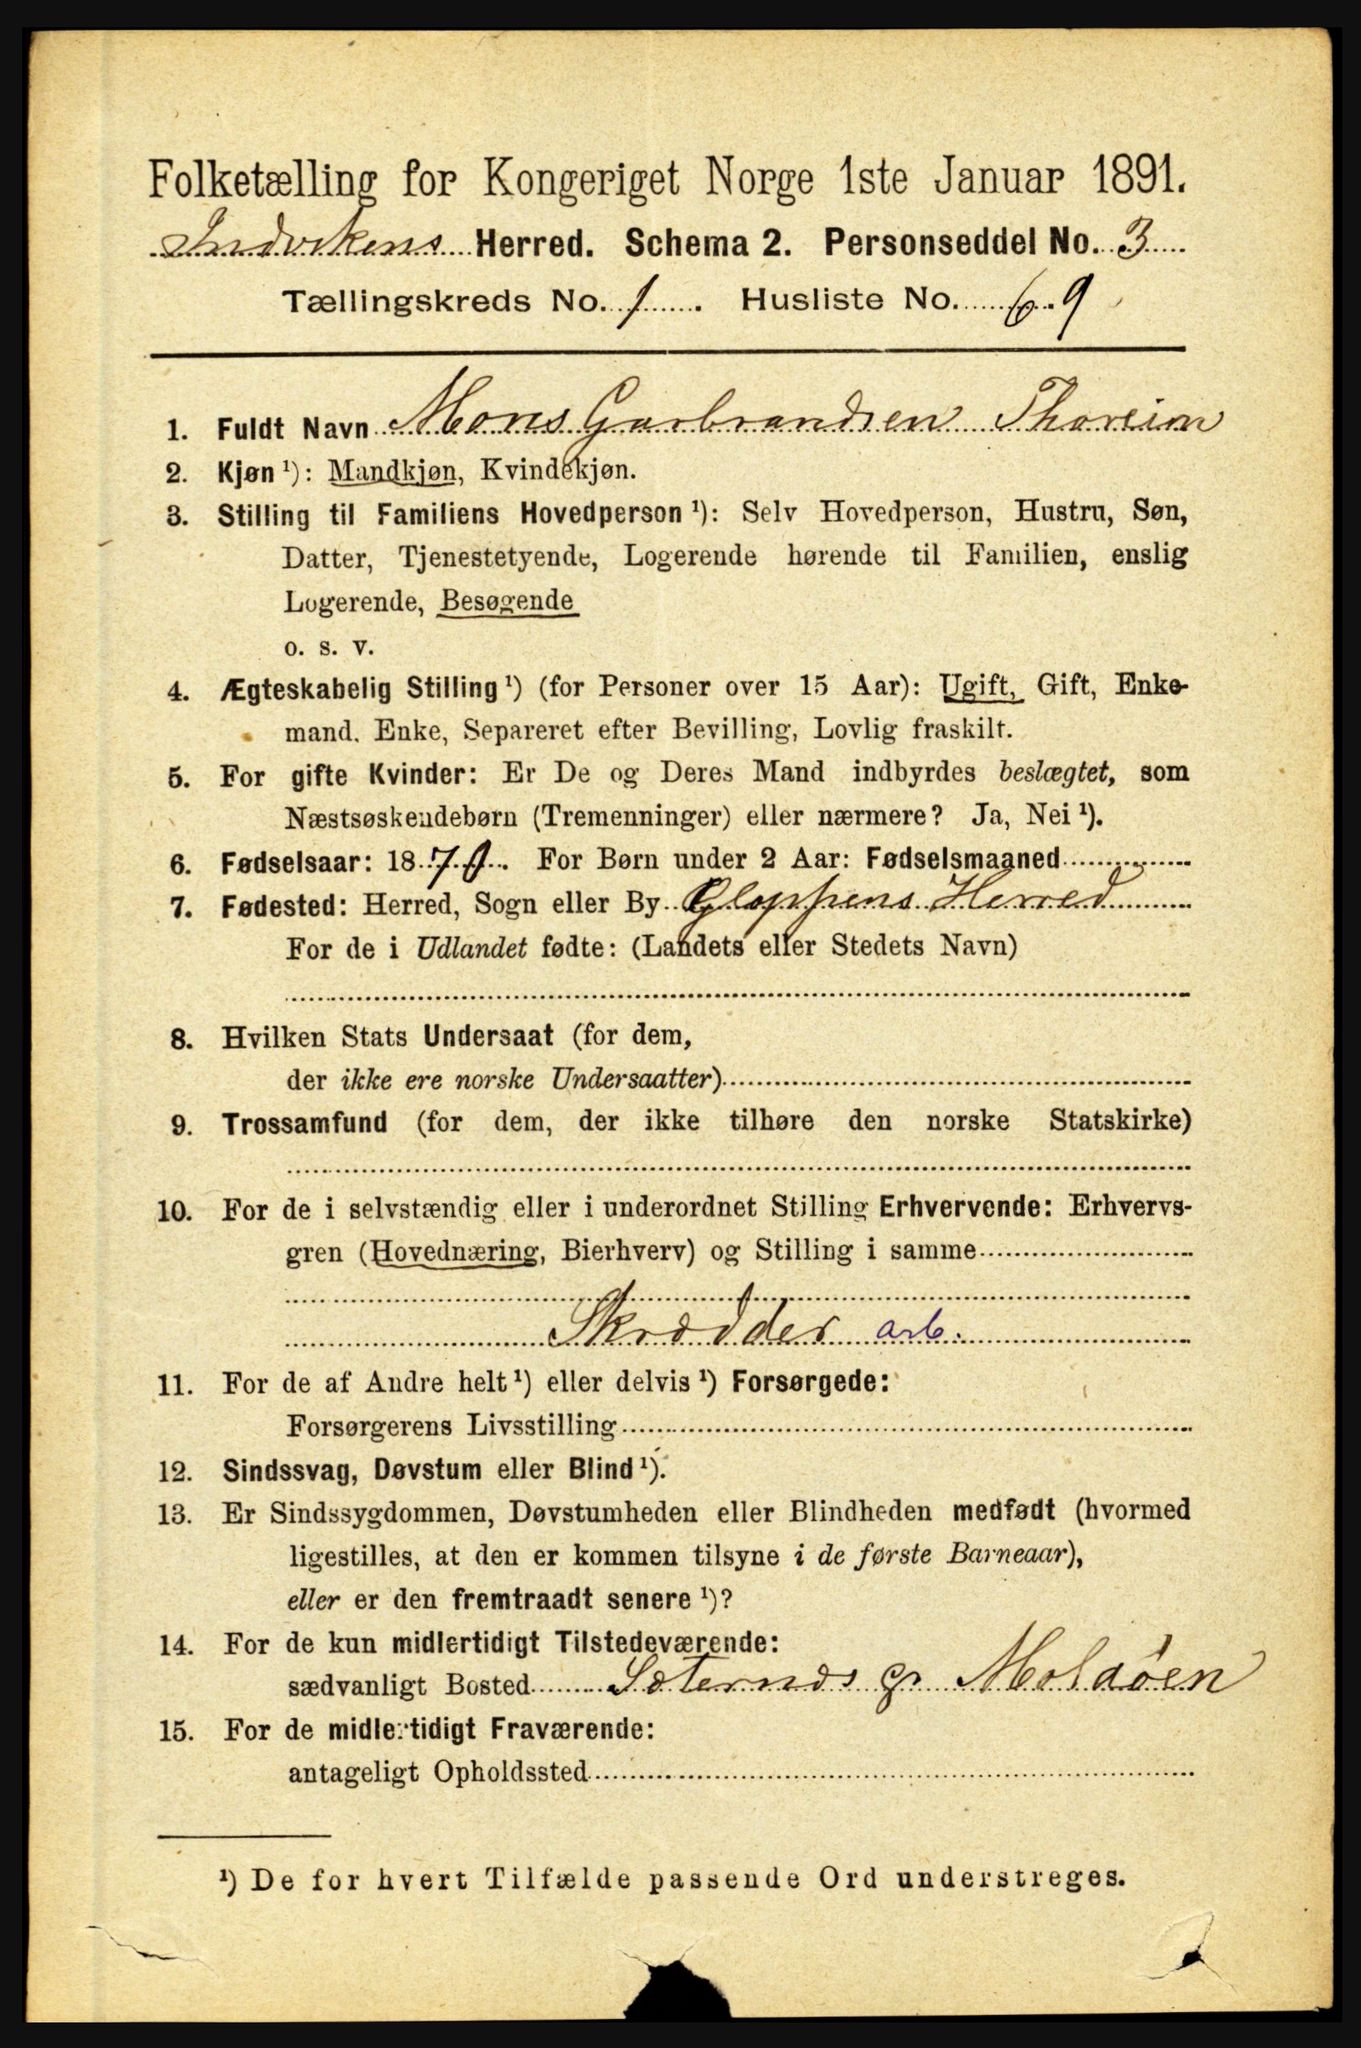 Folketælling for Kongeriget Norge 1ste Januar 1891.
Indvikens Herred. Schema 2. Personseddel No. 3
Tællingskreds No. 1. Husliste No. 69
1. Fuldt Navn Mons Garbrandsen Thoreim
2. Kjøn¹): Mandkjøn, Kvindekjøn.
3. Stilling til Familiens Hovedperson¹): Selv Hovedperson, Hustru, Søn,
Datter, Tjenestetyende, Logerende hørende til Familien, enslig
Logerende, Besøgende
o. s. v.
4. Ægteskabelig Stilling¹) (for Personer over 15 Aar): Ugift, Gift, Enke-
mand, Enke, Separeret efter Bevilling, Lovlig fraskilt.
5. For gifte Kvinder: Er De og Deres Mand indbyrdes beslægtet, som
Næstsøskendebørn (Tremenninger) eller nærmere? Ja, Nei¹).
6. Fødselsaar: 18 For Børn under 2 Aar: Fødselsmaaned
7. Fødested: Herred, Sogn eller By Gloppens Herred
For de i Udlandet fødte: (Landets eller Stedets Navn)
8. Hvilken Stats Undersaat (for dem,
der ikke ere norske Undersaatter)
9. Trossamfund (for dem, der ikke tilhøre den norske Statskirke)
10. For de i selvstændig eller i underordnet Stilling Erhvervende: Erhvervs-
gren (Hovednæring, Bierhverv) og Stilling i samme
Skrædder arb.
11. For de af Andre helt¹) eller delvis¹) Forsørgede:
Forsørgerens Livsstilling
12. Sindssvag, Døvstum eller Blind¹).
13. Er Sindssygdommen, Døvstumheden eller Blindheden medfødt (hvormed
ligestilles, at den er kommen tilsyne i de første Barneaar),
eller er den fremtraadt senere¹)?
14. For de kun midlertidigt Tilstedeværende:
sædvanligt Bosted Sæternæs Moldøen
15. For de midlertidigt Fraværende:
antageligt Opholdssted
¹) De for hvert Tilfælde passende Ord understreges.